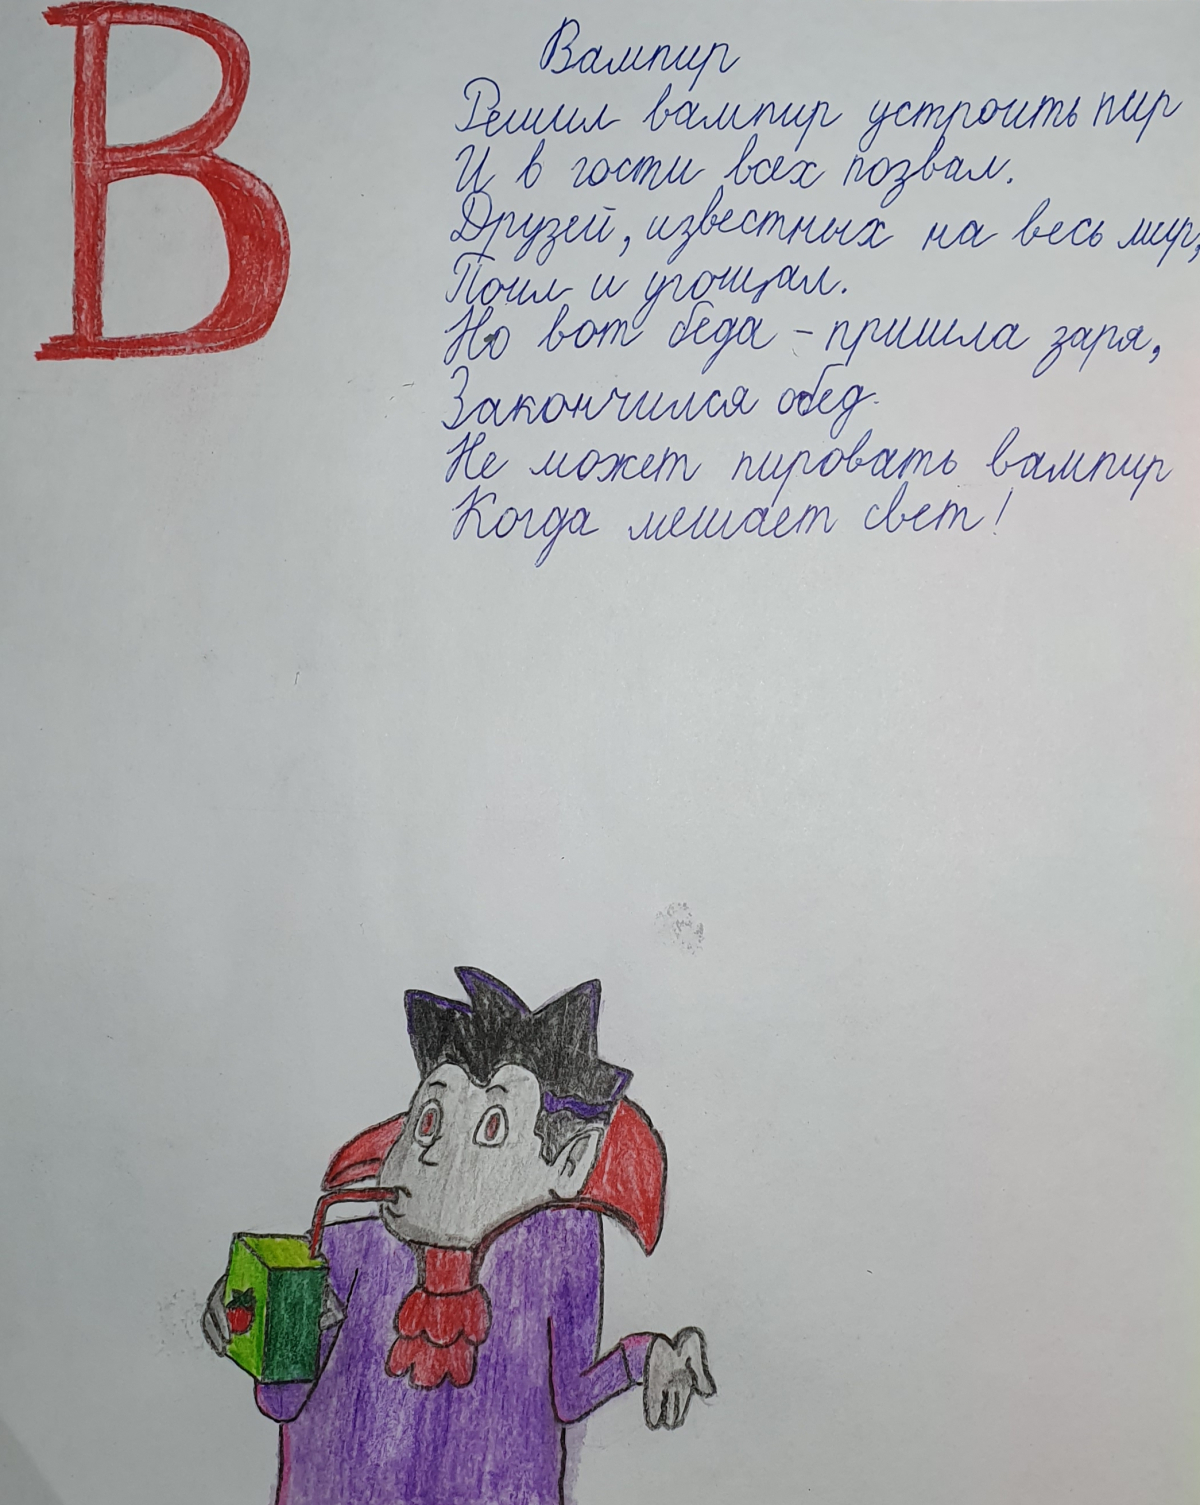 В
Вампир
Решил вампир устроить пир
И в гости всех позвал.
Друзей, известных на весь мир,
Поил и угощал.
Но вот беда - пришла заря,
Закончился обед.
Не может пировать вампир
Когда мешает свет!